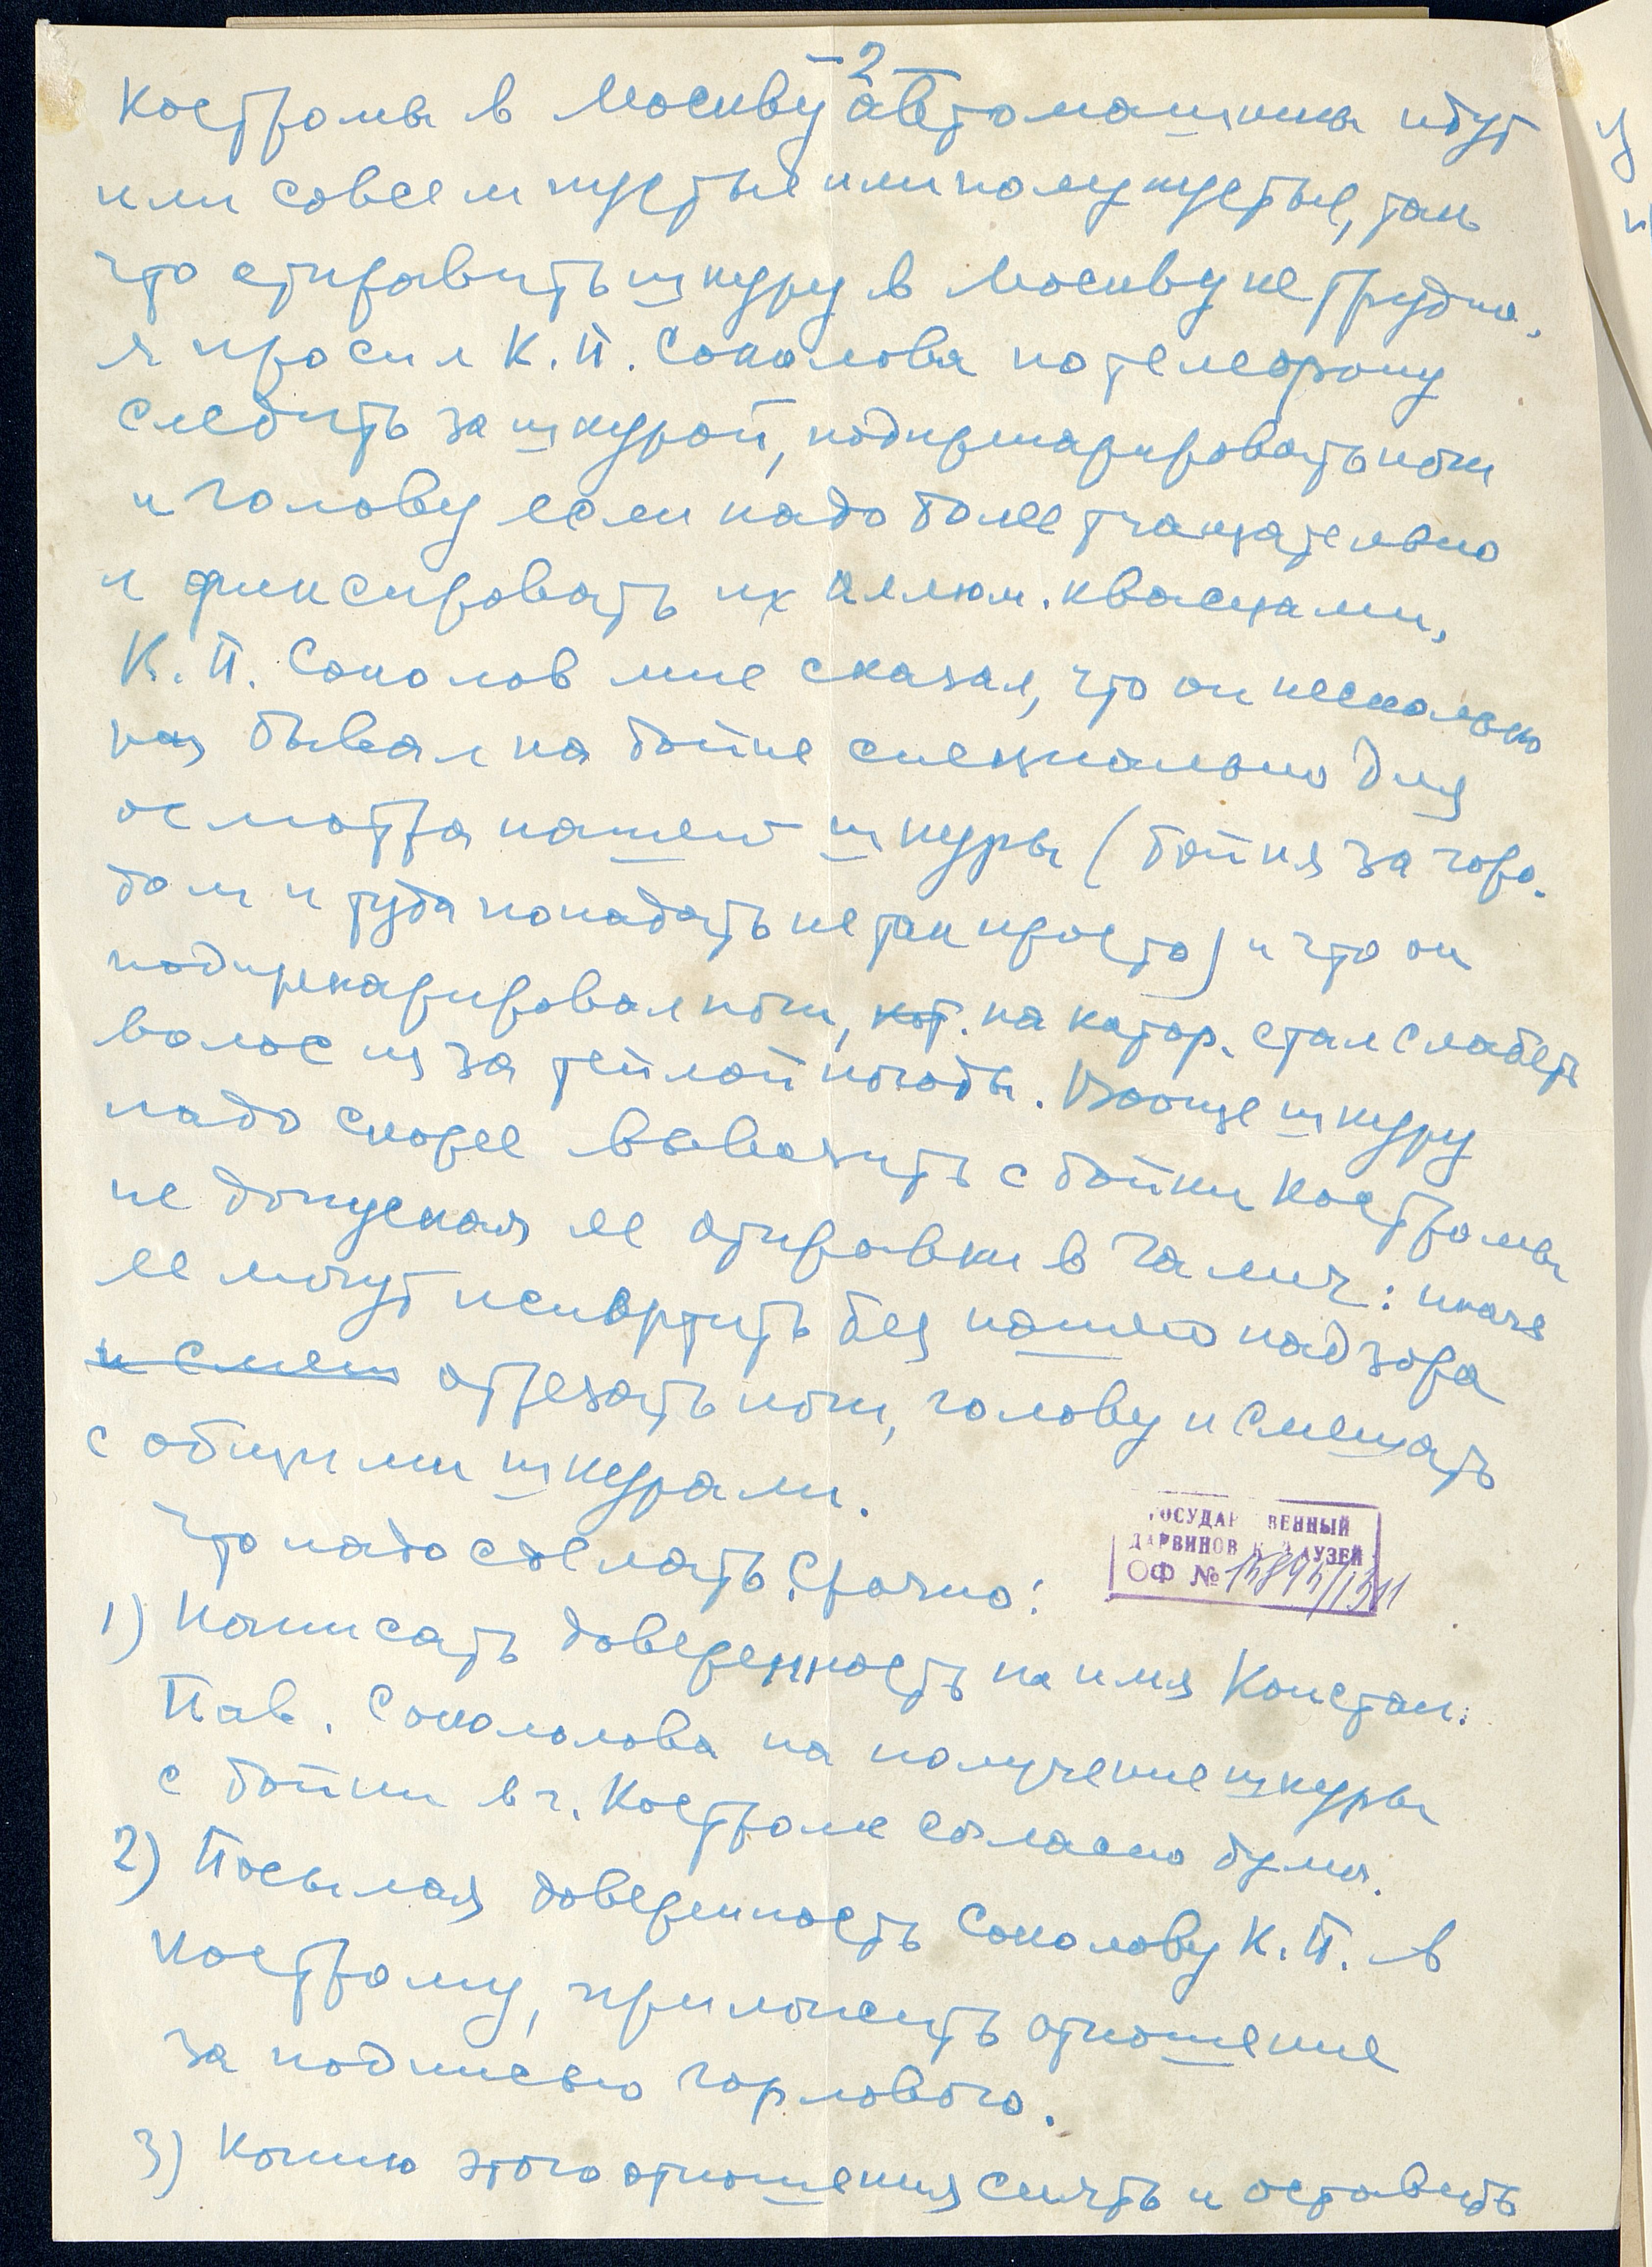 -2-
Костромы в Москву автомашины идут
или совсем пустые или полупустые, так
что отправить шкуру в Москву не трудно.
Я просил К. П. Соколова по телефону
следить за шкурой, подпрепарировать ноги
и голову если надо более тщательно
и фиксировать их аллюм. квасцами.
К. П. Соколов мне сказал, что он несколько
раз бывал на бойне специально для
осмотра нашей шкуры (бойня за горо-
дом и туда попадать не так просто) и что он
подпрепарировал ноги, кот. на катор. стал слабеть
волос из за теплой погоды. Вообще шкуру
надо скорее вывозить с бойни Костромы
не допуская ее отправки в Галич: иначе
ее могут испортить без нашего надзора
и смеш отрезать ноги, голову и смешать
с общими шкурами.
Что надо сделать срочно:
ГОСУДАРСТВЕННЫЙ
ДАРВИНОВСКИЙ МУЗЕЙ
ОФ №
1) Написать доверенность на имя Констан.
Пав. Сокололова на получение шкуры
с бойни в г. Костроме согласно бумаг.
2) Посылая доверенность Соколову К. П. в
Кострому, приложить отношение
за подписью Горлового.
3) Копию этого отношения снять и оставить